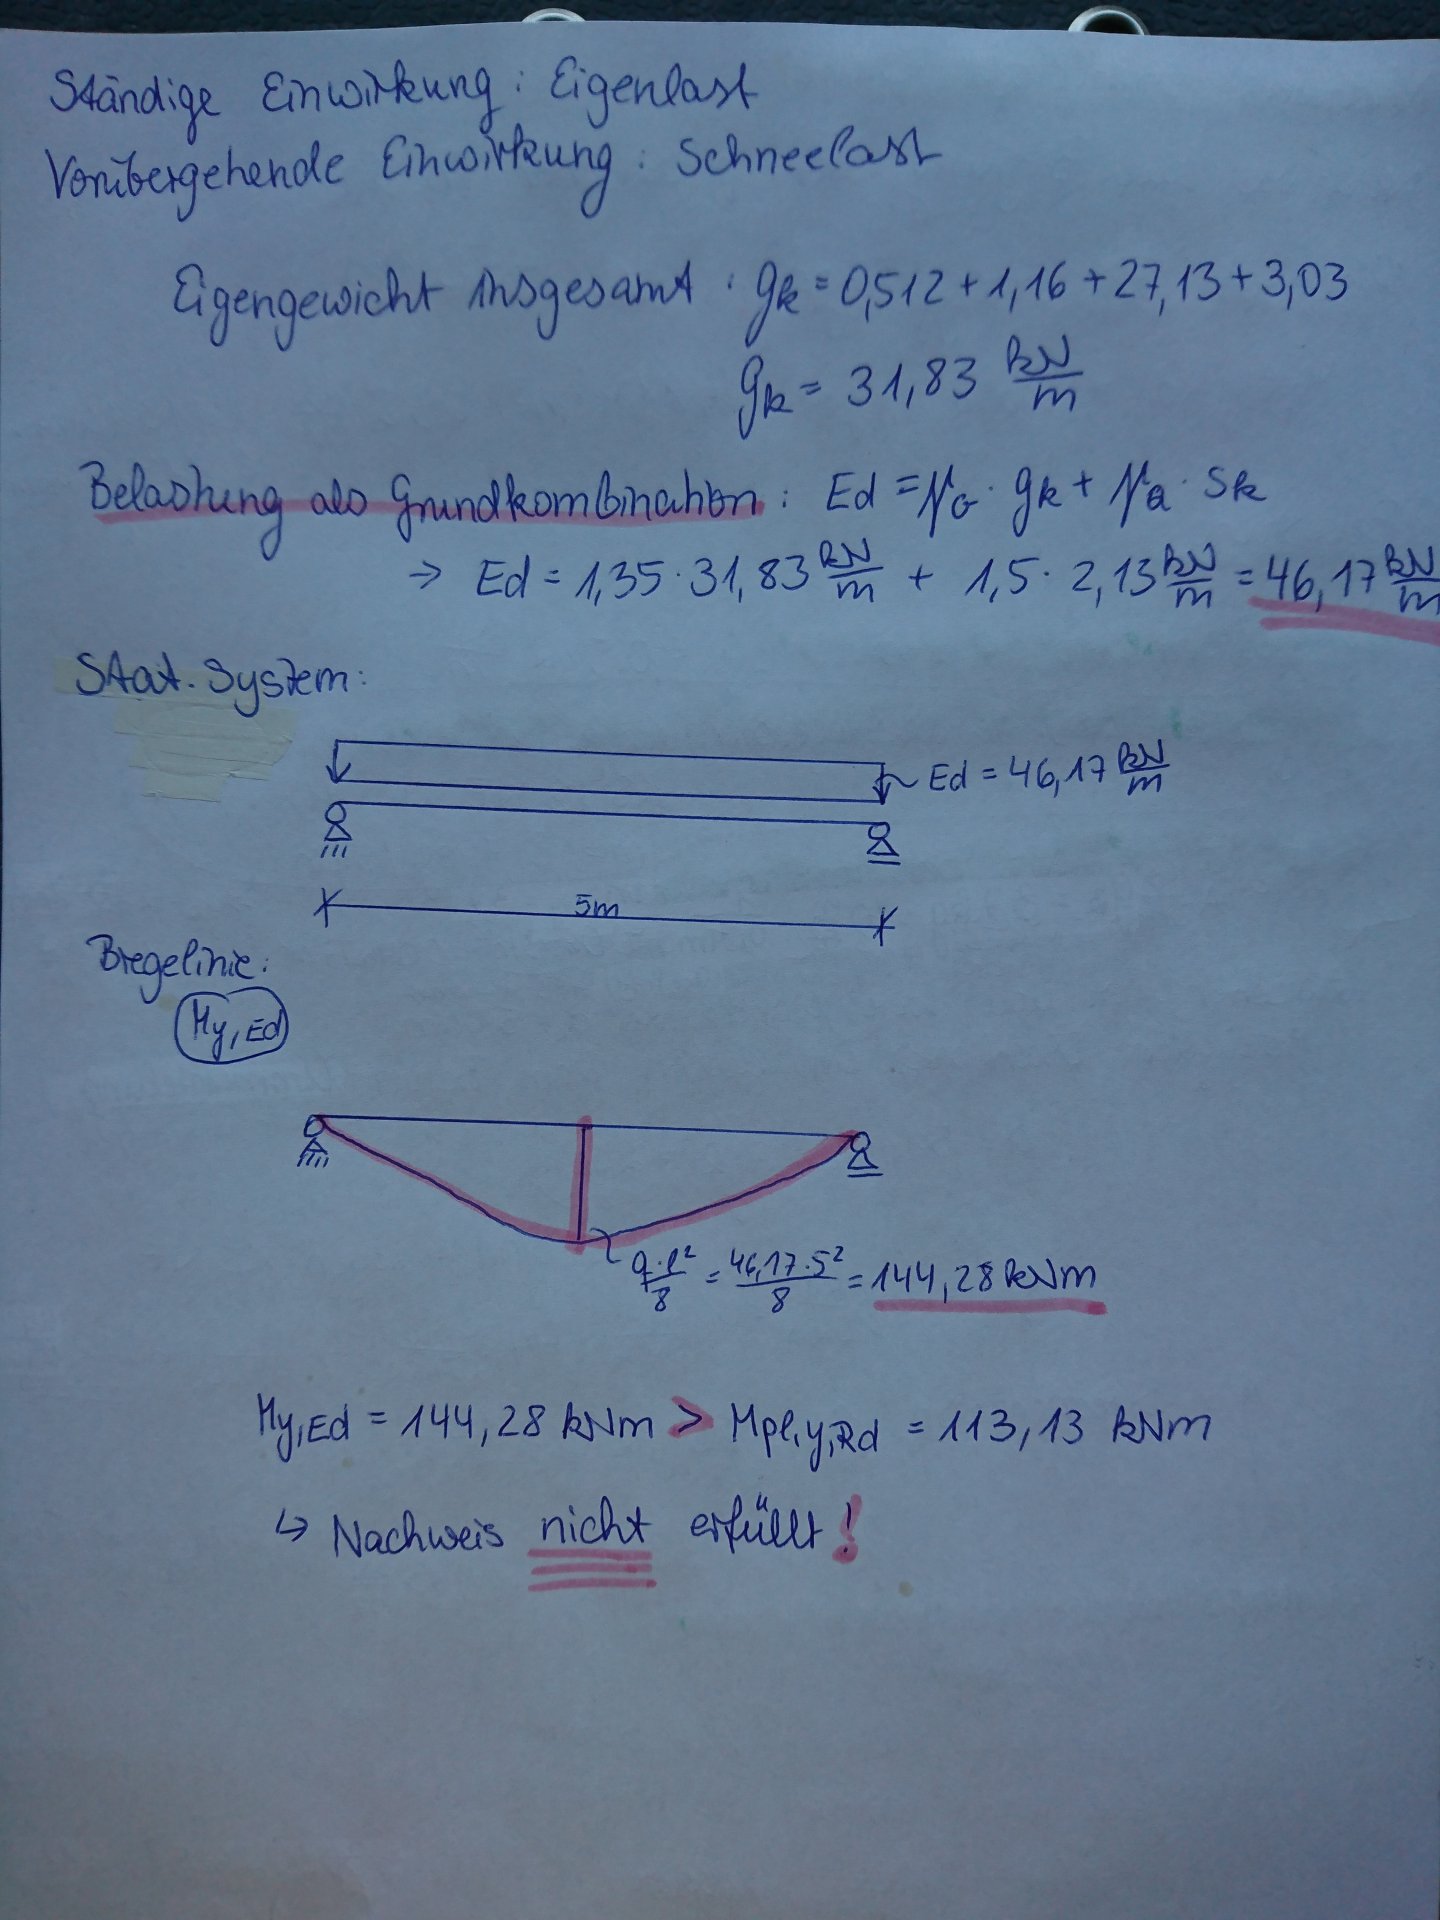 Ständige Einwirkung: Eigenlast
Vorübergehende Einwirkung: Schneelast
Eigengewicht insgesamt: gk = 0,512 + 1,16 + 27,13 + 3,03
gk = 31,83 kN/m
Belastung als Grundkombination: Ed = γG · gk + γQ · sk
→ Ed = 1,35 · 31,83 kN/m + 1,5 · 2,13 kN/m = 46,17 kN/m
Stat. System:
Ed = 46,17 kN/m
5m
Biegelinie:
My,Ed
q·l²/8 = 46,17·5²/8 = 144,28 kNm
My,Ed = 144,28 kNm > Mpl,y,Rd = 113,13 kNm
↳ Nachweis nicht erfüllt!